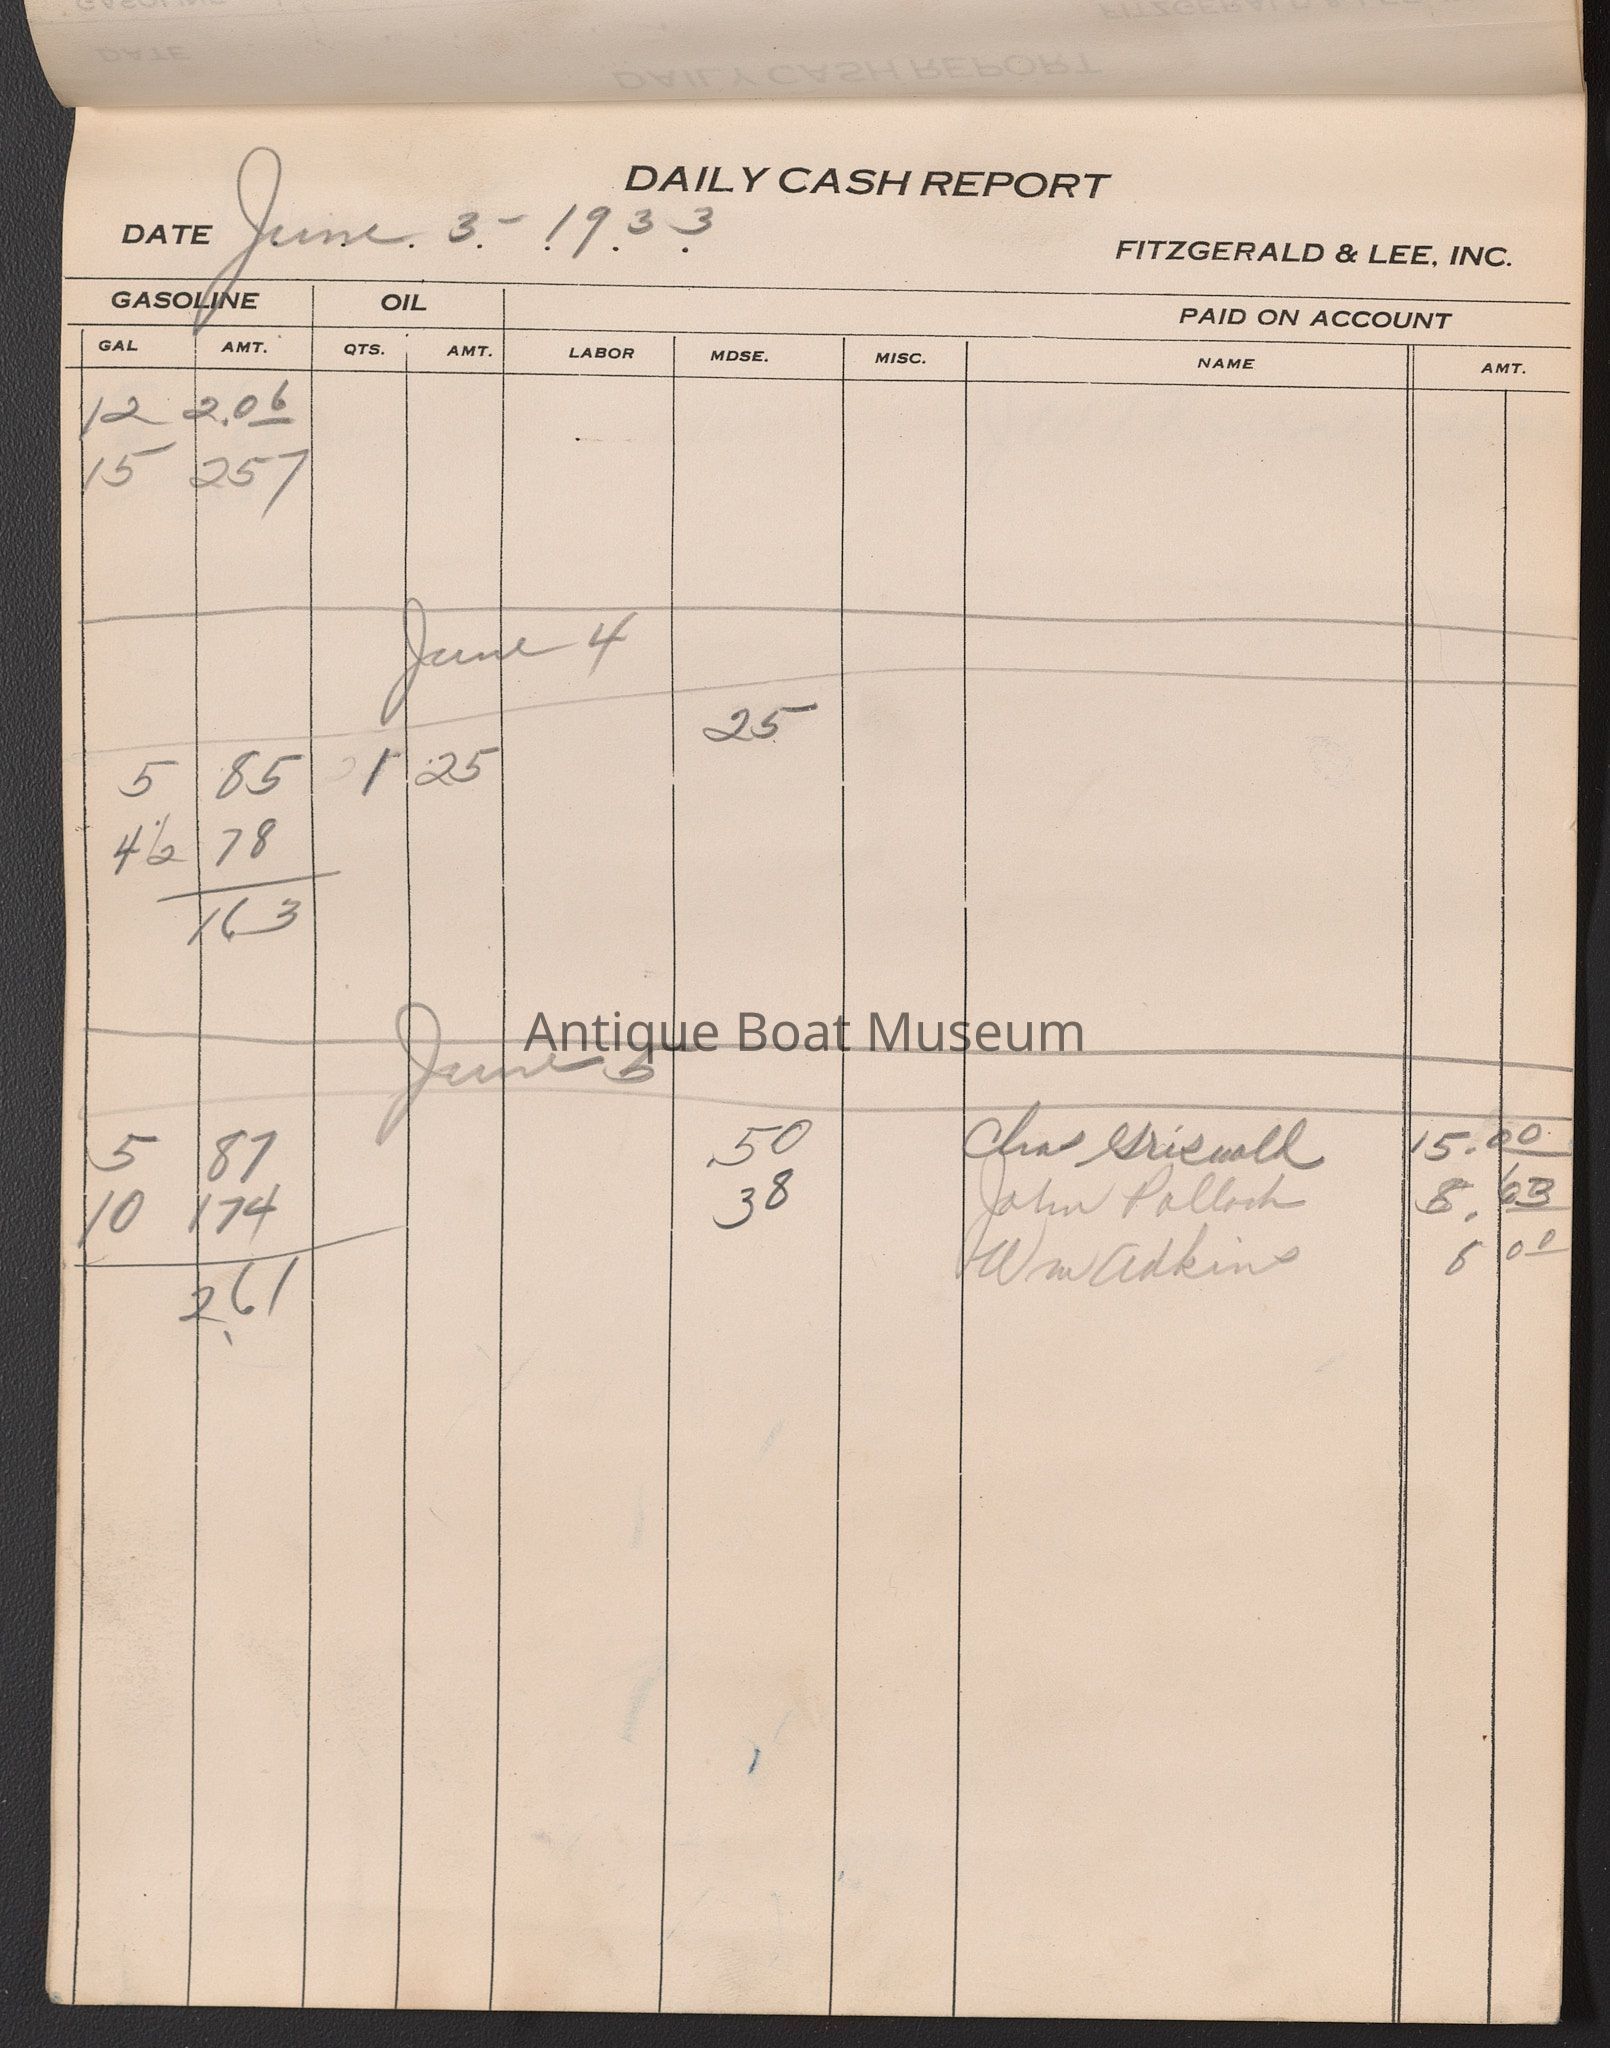 DAILY CASH REPORT
DATE June 3 - 1933
FITZGERALD & LEE, INC.
GASOLINE OIL PAID ON ACCOUNT
GAL AMT. QTS. AMT. LABOR MDSE. MISC. NAME AMT.
12 2.06
15 257
June 4
25
5 85 1 25
4 1/2 78
163
Antique Boat Museum
June 5
5 87 .50 Chas Griswold 15.00
10 174 38 John Pollock 8.63
Wm Adkins 00
261